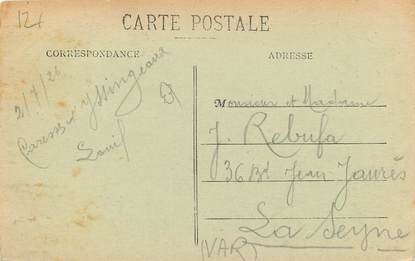 124
CARTE POSTALE
CORRESPONDANCE
ADRESSE
2/7/26
Yssingeaux
Caresses
Louis
Monsieur et Madame
J. Rebufa
36 Bd Jean Jaurès
La Seyne
(VAR)